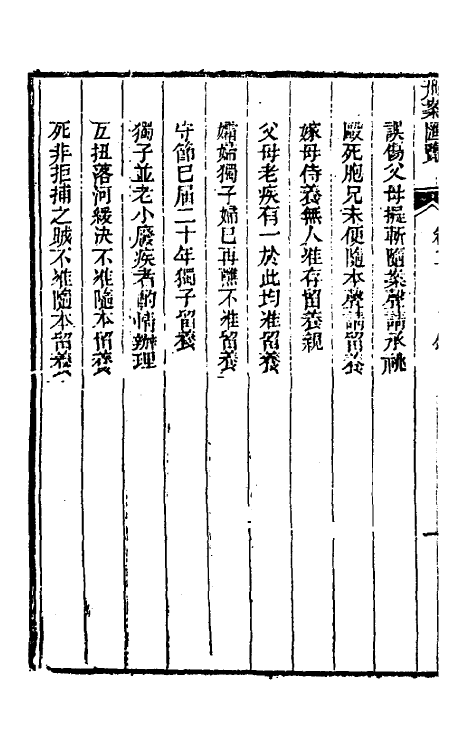 刑案匯覽
誤傷父母擬斬隨案聲請承祧
毆死胞兄未便隨本聲請留養
嫁母侍養無人准存留養親
父母老疾有一於此均准留養
孀婦獨子婦已再醮不准留養
守節已屆二十年獨子留養
獨子並老小廢疾者酌情辦理
互扭落河緩決不准隨本留養
死非拒捕之賊不准隨本留養